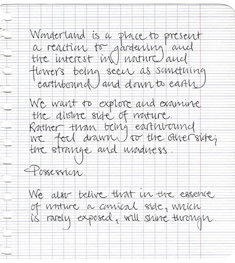 Wonderland is a place to present
a reaction to gardening and
the interest in nature and
flowers being seen as something
earthbound and down to earth
We want to explore and examine
the disture side of nature.
Rather than being earthbound
we feel drawn to the otherside,
the strange and madness
Possession
We also belive that in the essence
of nature a comical side, which
is rarely exposed, will shine through